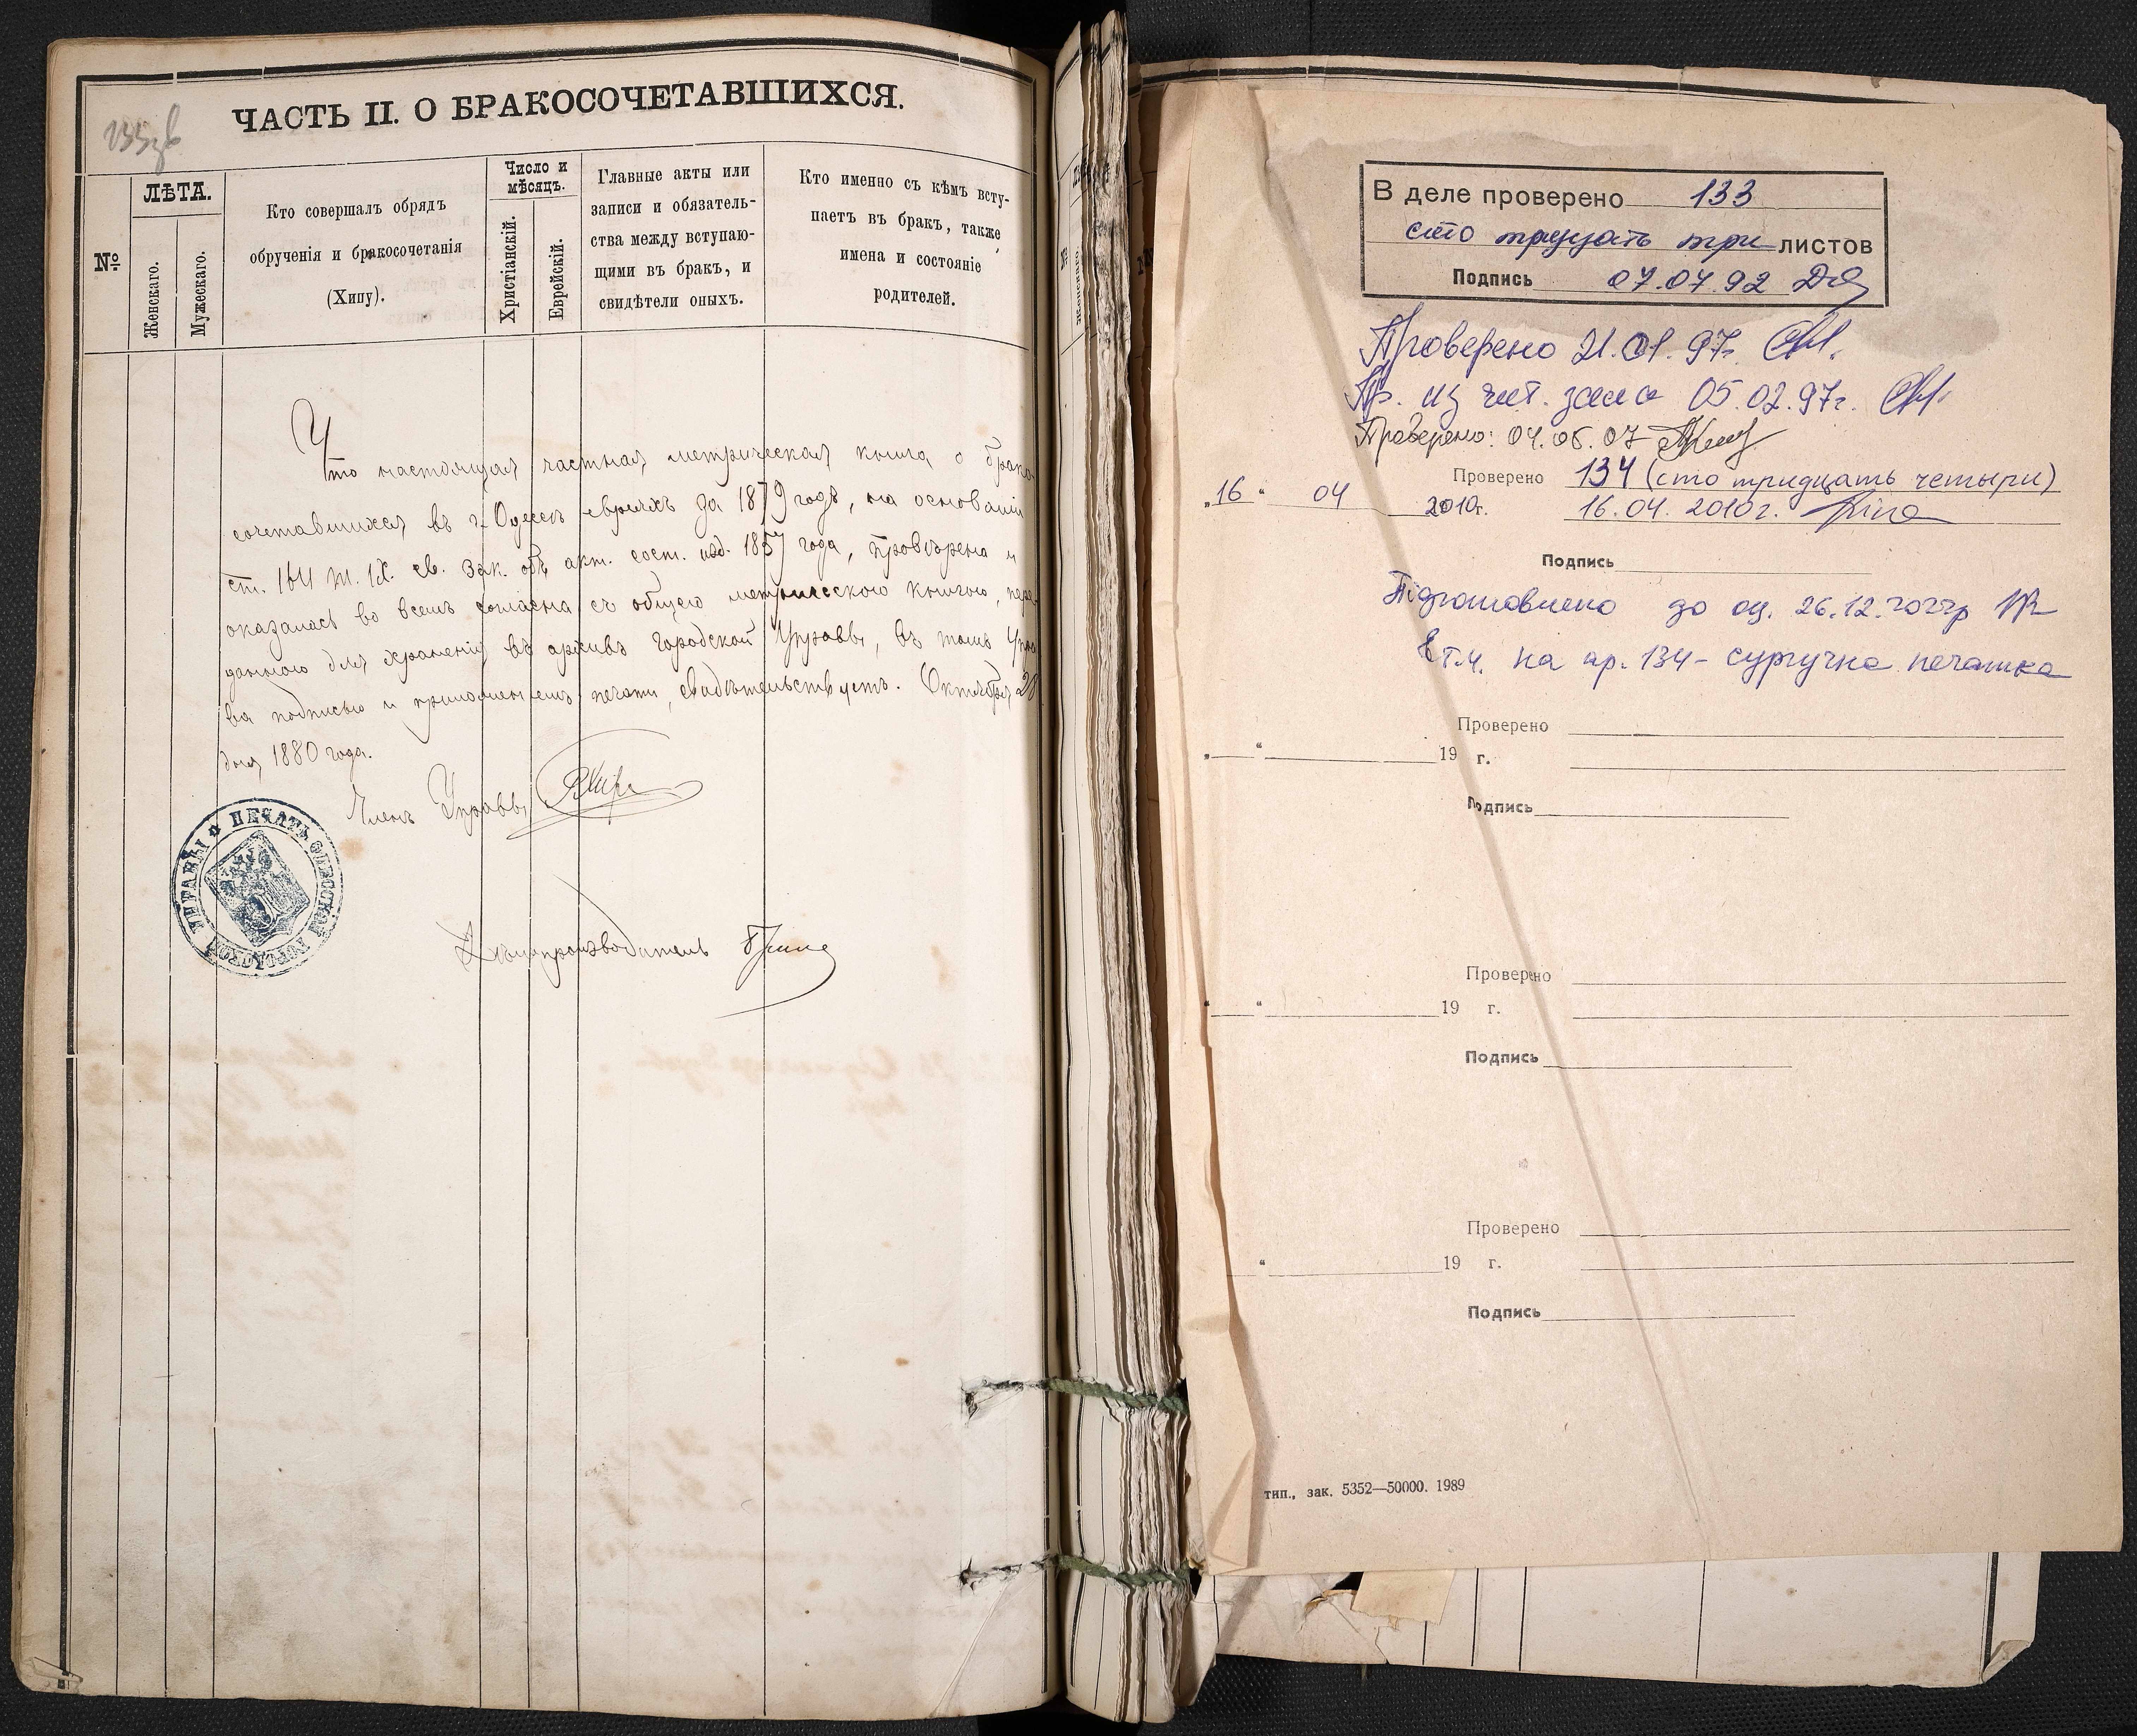 133 зв
ЧАСТЬ II. О БРАКОСОЧЕТАВШИХСЯ.
№
ЛѢТА.
Женскаго.
Мужескаго.
Кто совершалъ обрядъ
обрученія и бракосочетанія
(Хипу).
Число и
мѣсяцъ.
Христіанскій.
Еврейскій.
Главные акты или
записи и обязатель-
ства между вступаю-
щими въ бракъ, и
свидѣтели оныхъ.
Кто именно съ кѣмъ всту-
паетъ въ бракъ, также
имена и состояніе
родителей.
Что настоящая частная метрическая книга о брако-
сочетавшихся въ г. Одессѣ евреяхъ за 1879 годъ, на основаніи
ст. 1611 т. IX. св. зак. объ акт. сост. изд. 1857 года, провѣрена и
оказалась во всемъ согласна съ общею метрическою книгою, пере-
данною для храненія въ архивъ Городской Управы, въ томъ Упра-
ва подписью и приложеніемъ печати, свидѣтельствуетъ. Октября 20
дня 1880 года.
Членъ Управы
ПЕЧАТЬ ОДЕССКОЙ ГОРОДСКОЙ УПРАВЫ
Дѣлопроизводитель
В деле проверено 133
сто тридцать три листов
Подпись 07.07.92
Проверено 21.01.97г.
Пр. из чит. зала 05.02.97г.
Проверено: 04.06.07
Проверено 134 (сто тридцать четыри)
„16“ 04 2010г. 16.04.2010г.
Подпись
Підготовлено до оц. 26.12.2022р
в т.ч. на ар. 134 - сургучна печатка
Проверено
„ “ 19 г.
Подпись
Проверено
„ “ 19 г.
Подпись
Проверено
“ 19 г.
Подпись
тип., зак. 5352—50000. 1989